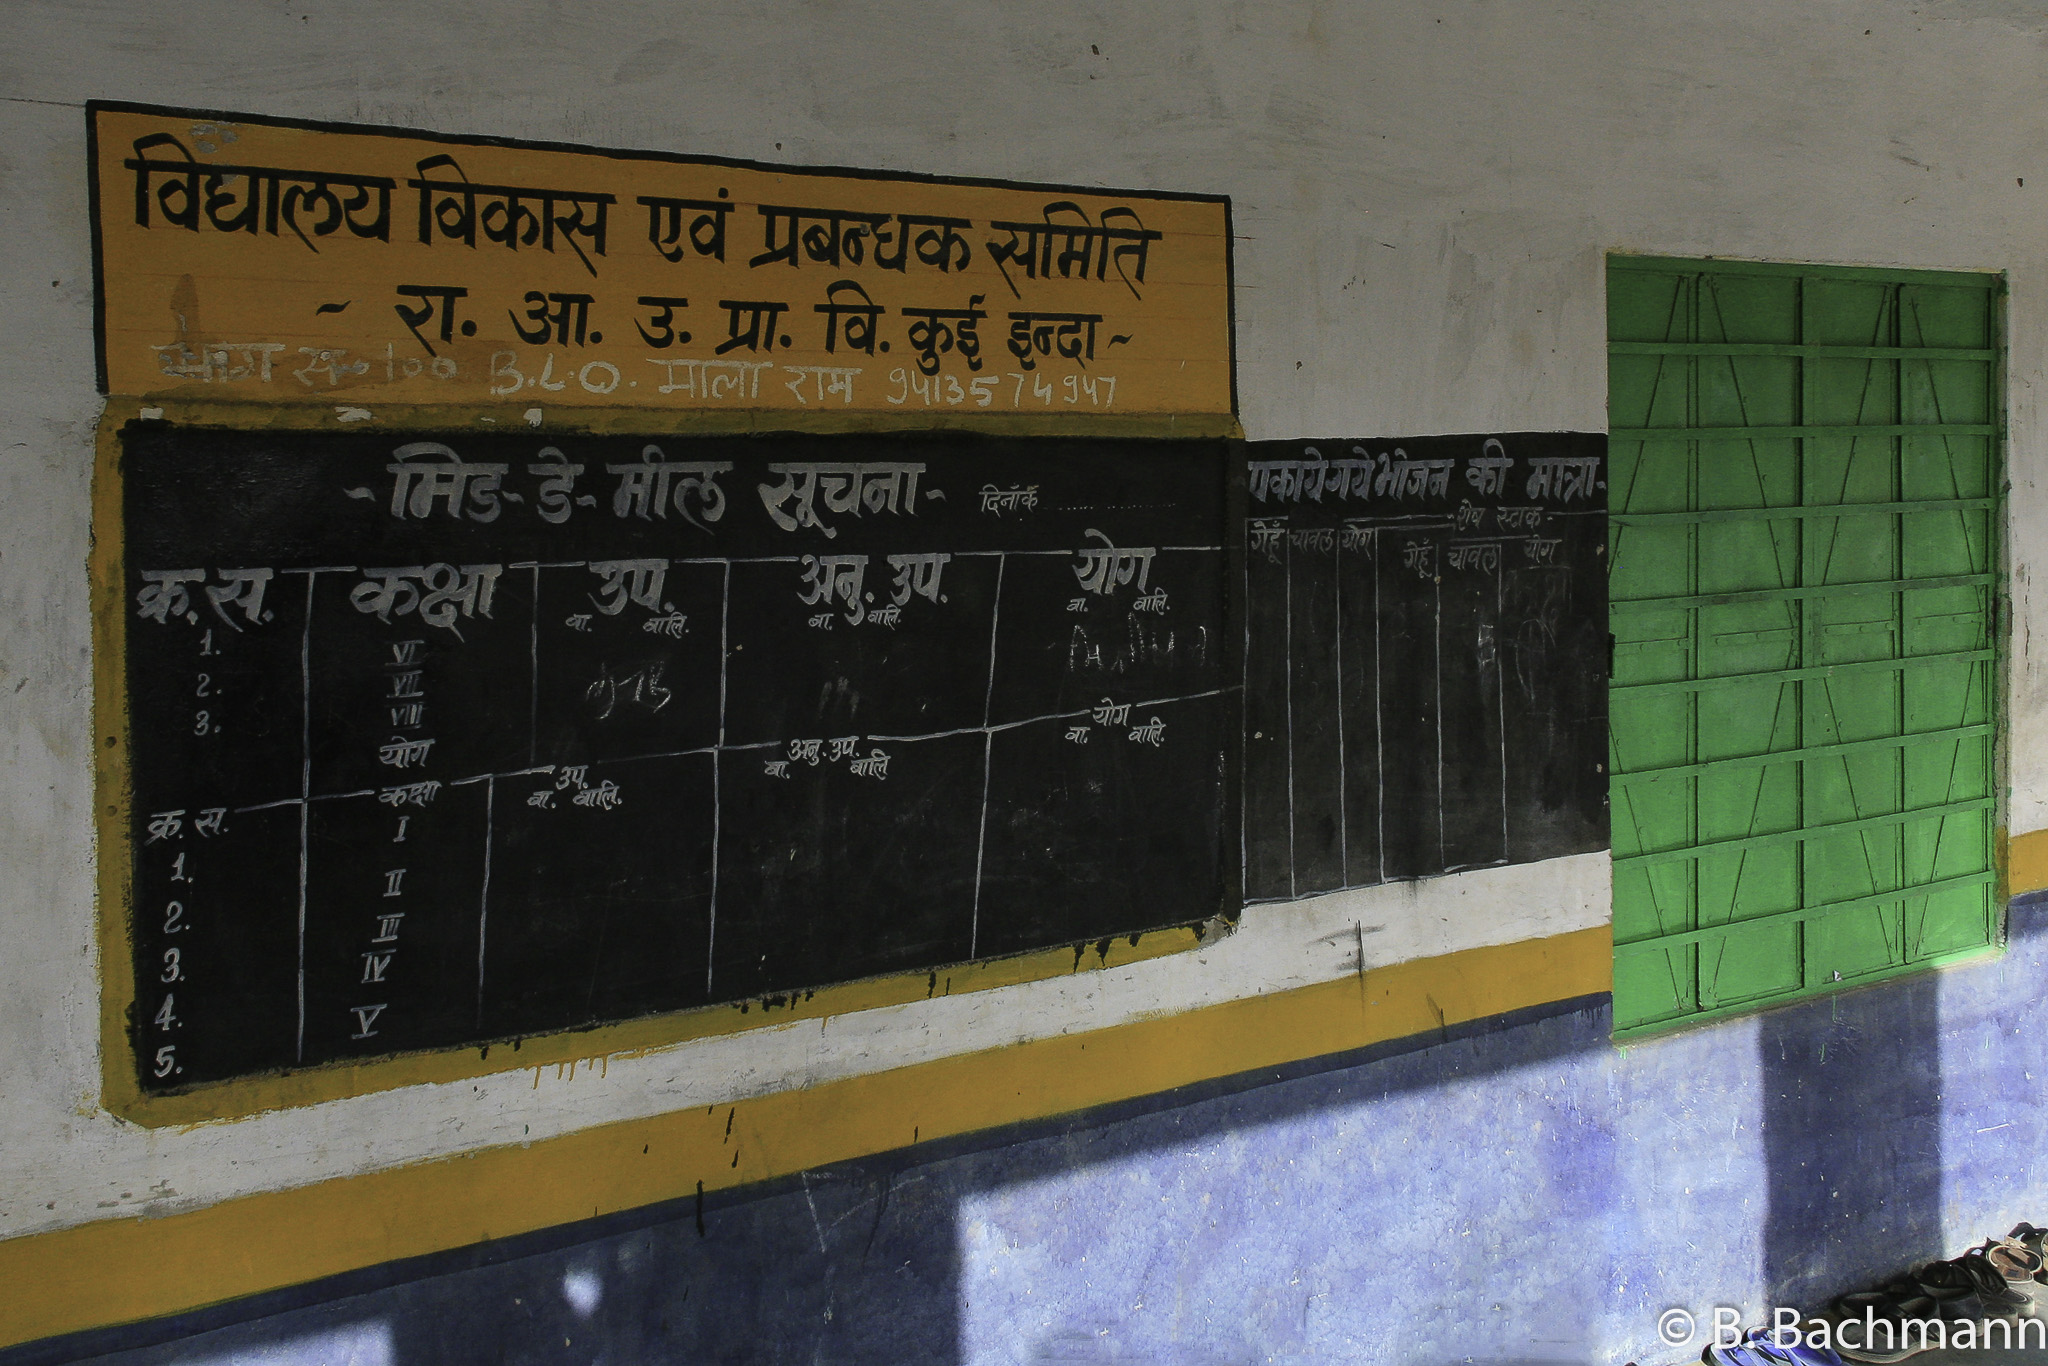 विद्यालय विकास एवं प्रबन्धक समिति
~ रा. आ. उ. प्रा. वि. कुई इन्दा ~
भाग स. 100 B.L.O. माला राम 9413574947
~ मिड-डे-मील सूचना ~ दिनाँक ..... ............
क्र.स. कक्षा उप. अनु. उप. योग
वा. वालि. वा. वालि. वा. वालि.
1. VI
2. VII
3. VIII
योग
क्र. स. कक्षा उप. अनु. उप. योग
वा. वालि. वा. वालि वा. वालि.
1. I
2. II
3. III
4. IV
5. V
पकाये गये भोजन की मात्रा-
-शेष स्टाक-
गेहूँ चावल योग गेहूँ चावल योग
© B. Bachmann